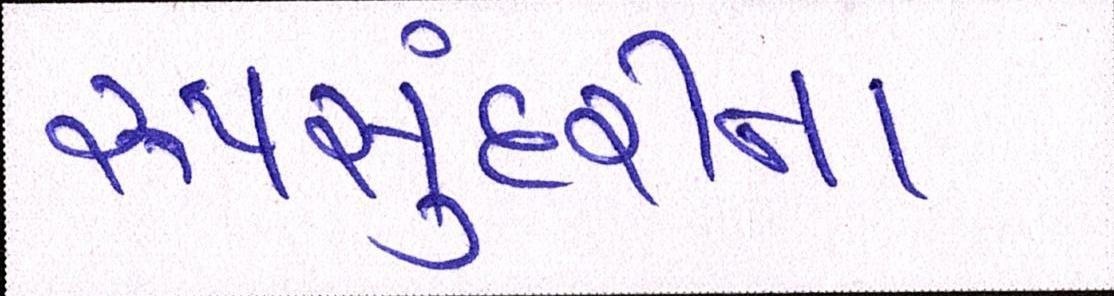 રૂપસુંદરીના